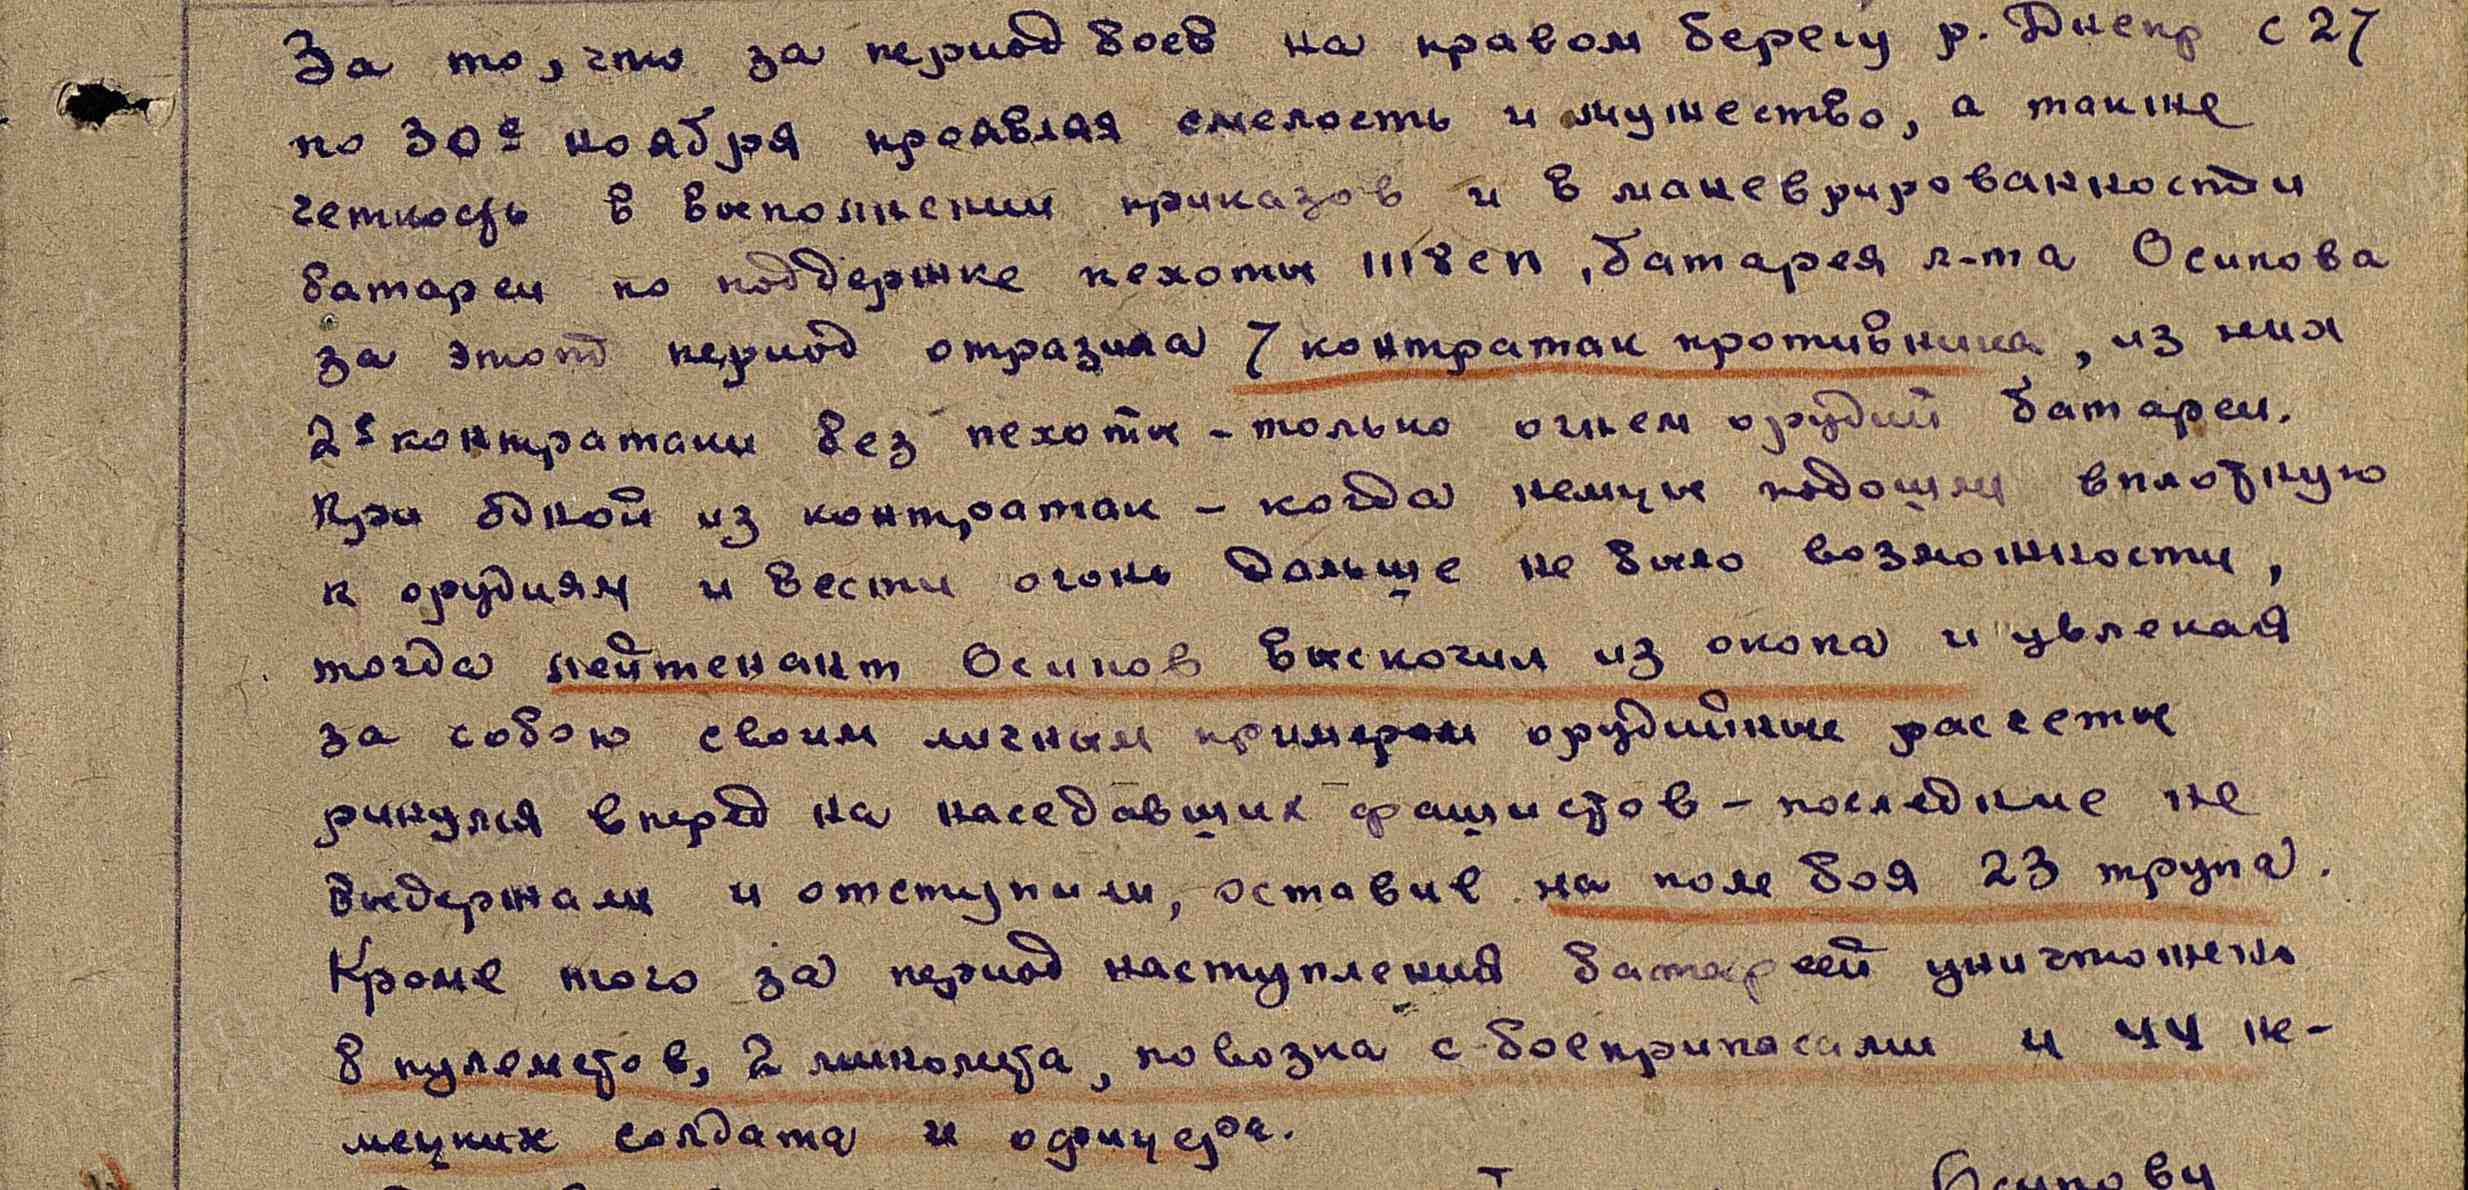 За то, что за период боев на правом берегу р. Днепр с 27
по 30е ноября проявляя смелость и мужество, а также
четкость в выполнении приказов и в маневрированности
батареи по поддержке пехоты 1118 сп, батарея л-та Осипова
за этот период отразила 7 контратак противника, из них
2е контратаки без пехоты - только огнем орудий батареи.
При одной из контратак - когда немцы подошли вплотную
к орудиям и вести огонь дальше не было возможности,
тогда лейтенант Осипов выскочил из окопа и увлекая
за собою своим личным примером орудийные рассеты
ринулся вперед на наседавших фашистов - последние не
выдержали и отступили, оставив на поле боя 23 трупа.
Кроме того за период наступления батареей уничтожено
8 пулеметов, 2 миномета, повозка с боеприпасами и 44 не-
мецких солдата и офицера.
Осипову